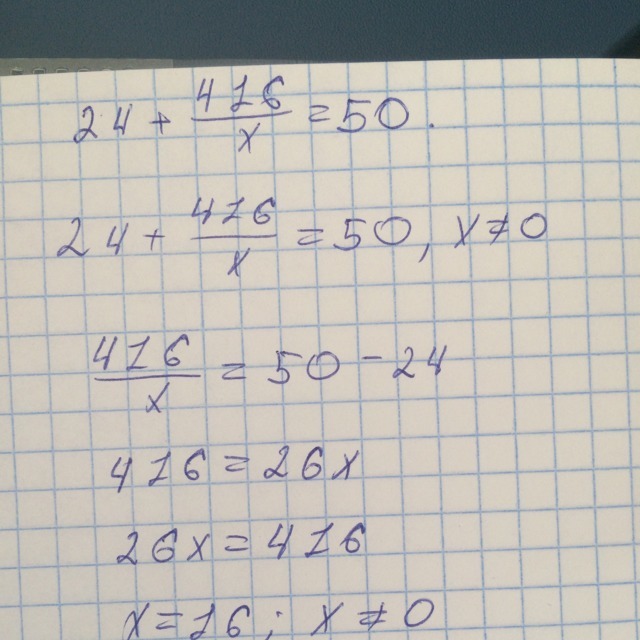 24 + 416/x = 50.
24 + 416/x = 50, x ≠ 0
416/x = 50 - 24
416 = 26x
26x = 416
x = 16; x ≠ 0